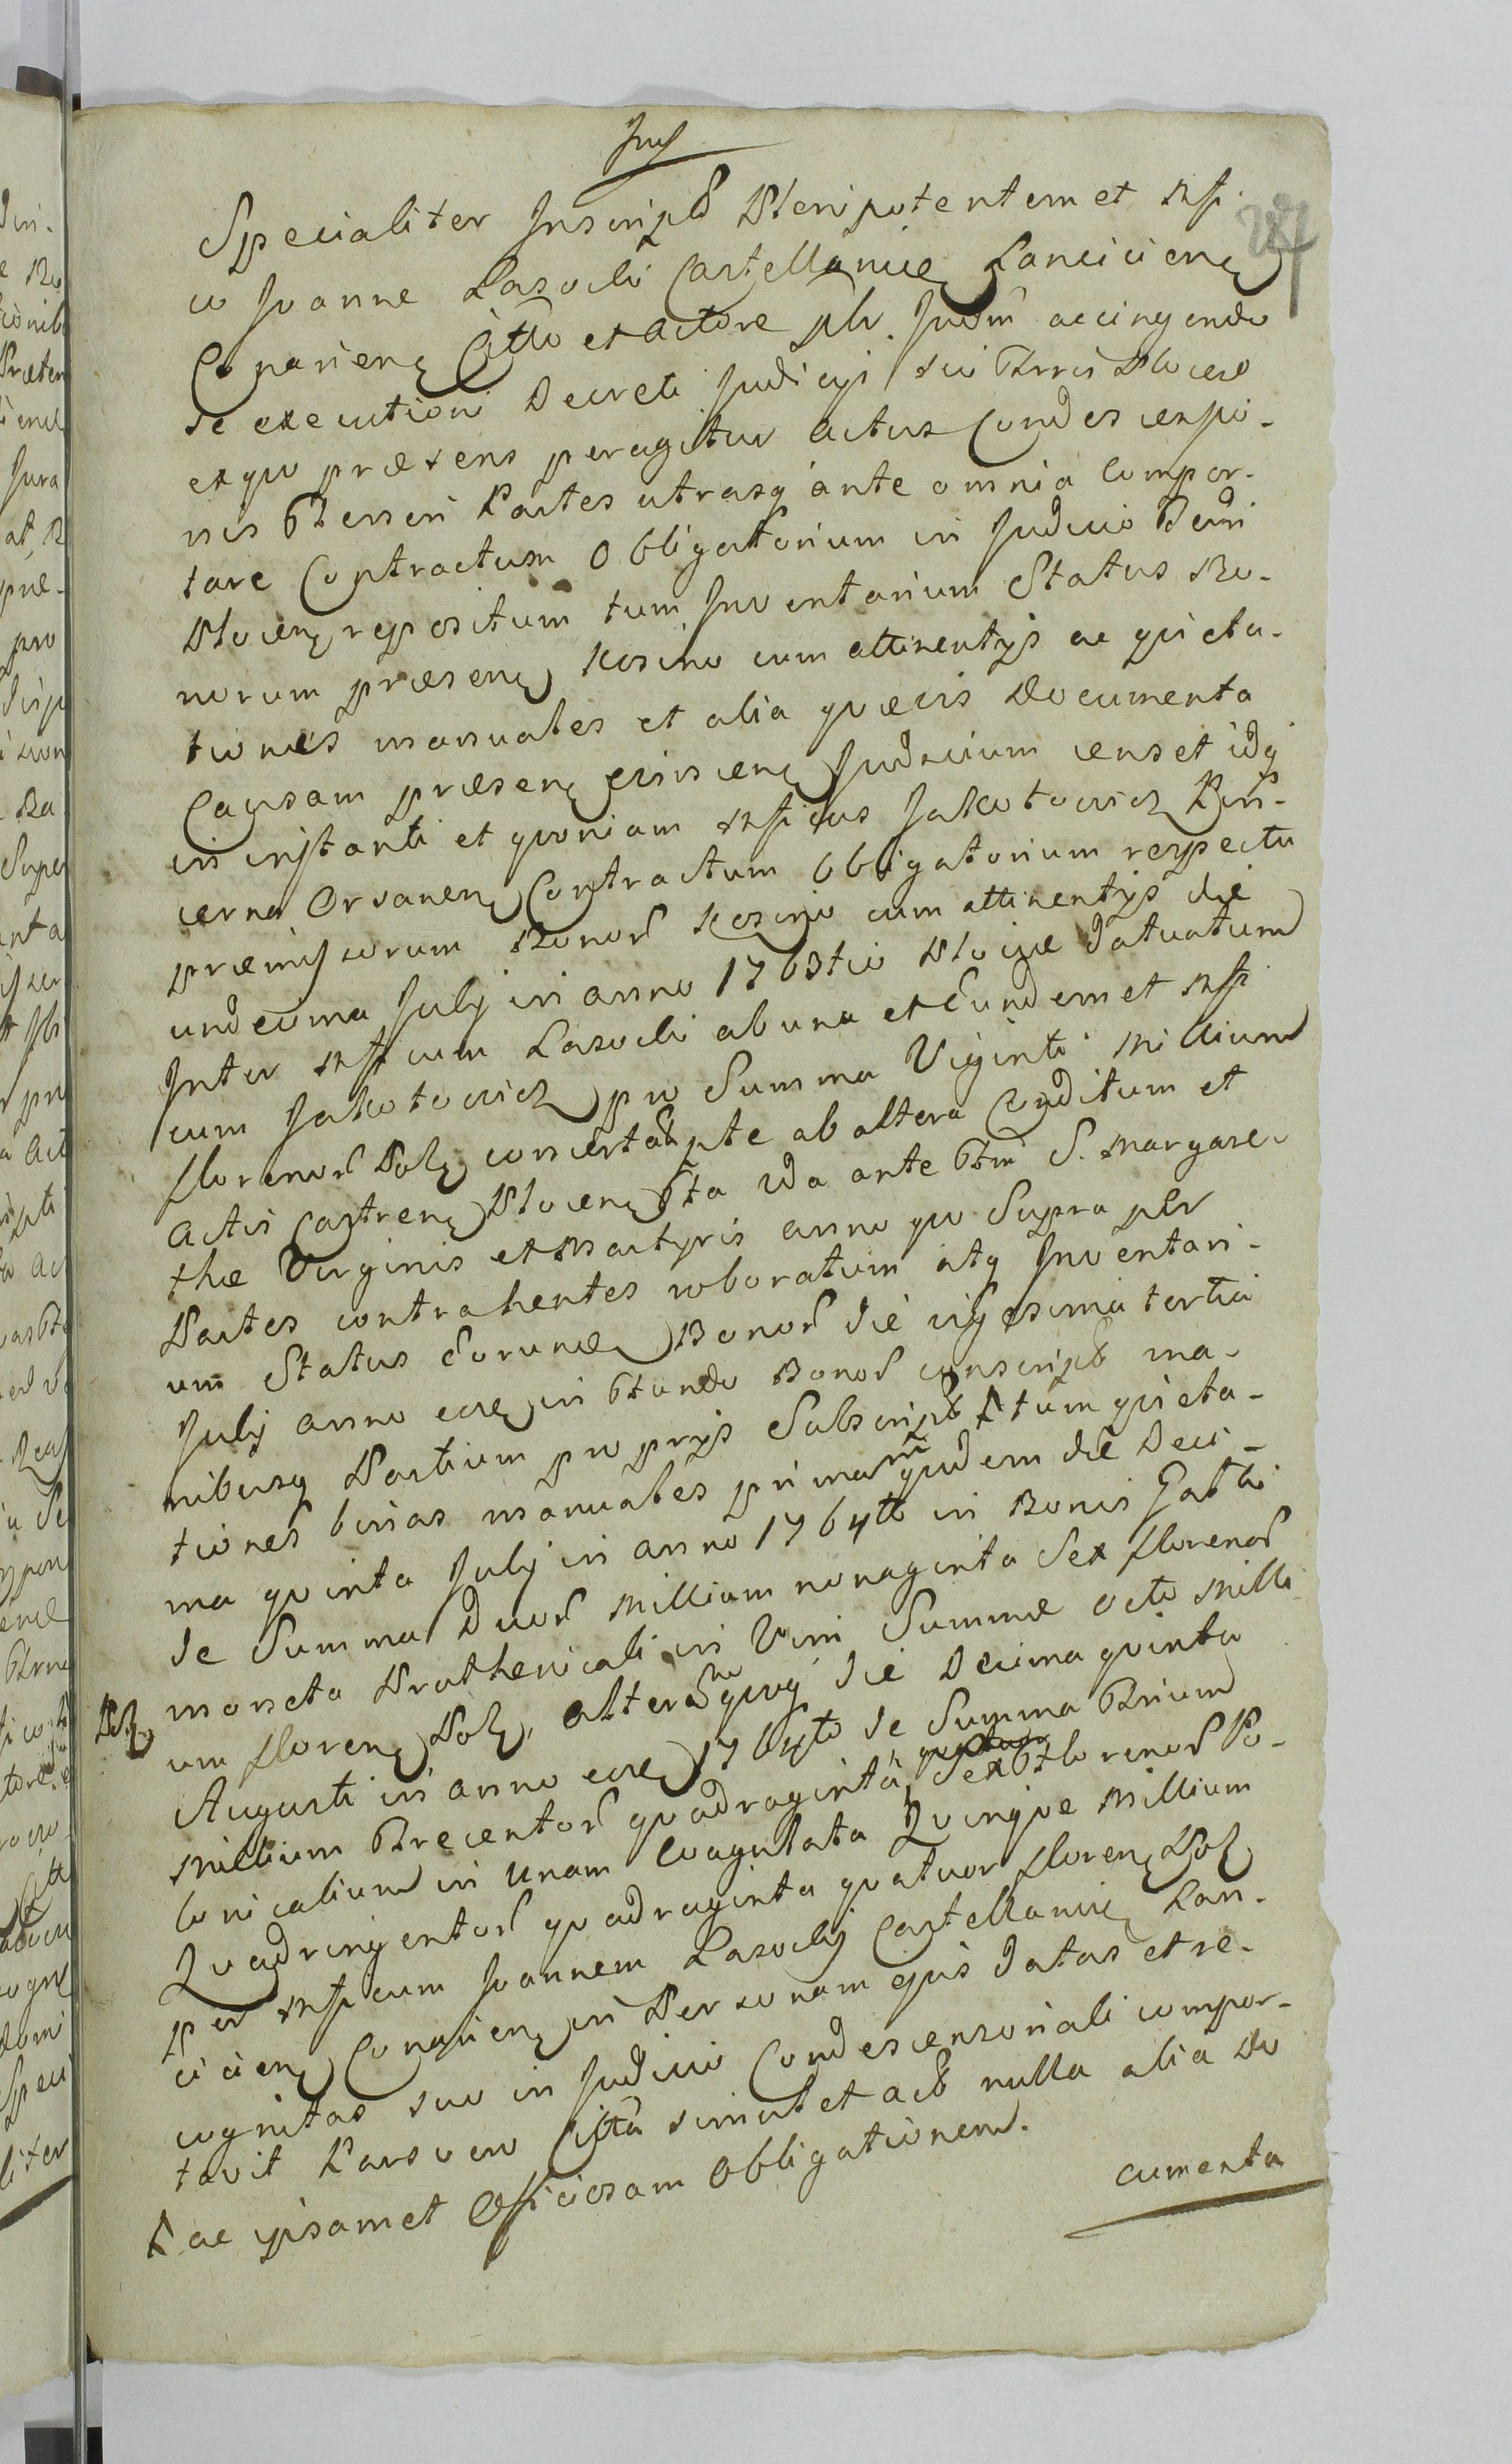 287
Specialiter Inscript Plenipotentem et Mfi
co Joanne Lasocki Castellanicę Lancicienę
Conarienę Citto et actore pb. Judm accingendo
se executioni Decreti Judicij sui Trris Plocen
ex quo præsens peragitur actus Condescensio-
nis Terren Partes utrasq ante omnia compor-
tare Contractum Obligatorium in Judicio Terri
Plocenę repositum tum Inventarium Status Bo-
norum præsenę Kosino cum attinentijs ac quieta-
tiones manuales et alia quævis Documenta
Causam præsenę Judicium censet idq
in instanti et quoniam Mficus Jakotowicz Pin-
cerna Orsanenę Contractum Obligatorium respectu
præmissorum Bonor Kosino cum attinentijs die
undecima July in anno 1763tio Plociæ datuatum
Inter Mficum Lasocki ab una et Eundemet Mfi
cum Jakotowicz pro Summa Viginti Millium
florenor Polę pte ab altera Conditum et
Actis Castrenę Plocenę fta 2da ante ftm S. Margare-
thæ Virginis et Martyris anno quo Supra per
Partes contrahentes roboratum atq Inventari-
um Status Eorundę Bonor die vigesima tertia
July anno eodę in fundo Bonor conscript ma-
nibusq Partium proprijs Subscript tum quieta-
tiones binas manuales primam quidem die Deci-
ma quinta July in anno 1764to in Bonis
de Summa Duor Millium nonaginta Sex florenor
moneta Pruthenicali in Vim Summæ octo Milli
um florenę Polę, alteram quoq die Decima quinta
Augusti in anno eodę 1764to de Summa Trium
Millium Trecentor quadraginta Sex florenor Po-
lonicalium in unam Coagulata Quinque Millium
Quadringentor quadraginta quatuor florenę Polę
per Mficum Joannem Lasocki Castellanicę Lan-
cicienę Conarienę in Personam ejus datas et re-
cognitas suo in Judicio Condescensoriali compor-
tavit Pars vero Citta simul et act nulla alia Do
ac ipsamet Officiosam Obligationem.
cumenta